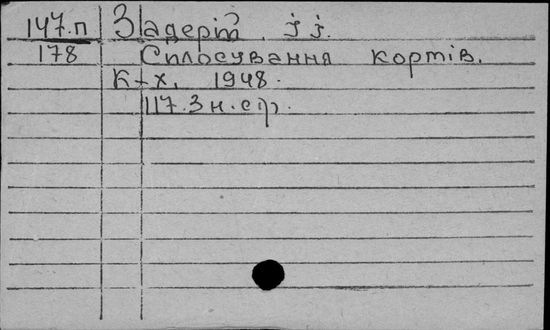 147.п Задерій, І І.
178 Силосування кормів.
К-Х, 1948.
117.3 н.ср.